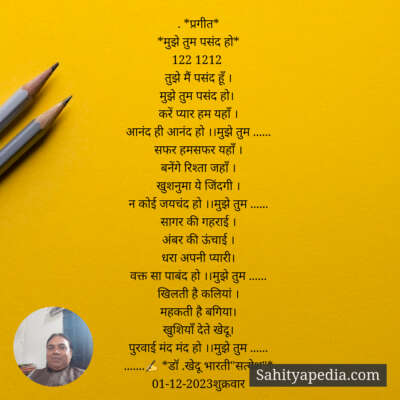 . *प्रगीत*
*मुझे तुम पसंद हो*
122 1212
तुझे मैं पसंद हूँ ।
मुझे तुम पसंद हो।
करें प्यार हम यहाँ ।
आनंद ही आनंद हो ।।मुझे तुम ......
सफर हमसफर यहाँ ।
बनेंगे रिश्ता जहाँ ।
खुशनुमा ये जिंदगी ।
न कोई जयचंद हो ।।मुझे तुम ......
सागर की गहराई ।
अंबर की ऊंचाई ।
धरा अपनी प्यारी।
वक्त सा पाबंद हो ।।मुझे तुम ......
खिलती है कलियां ।
महकती है बगिया।
खुशियाँ देते खेदू।
पुरवाई मंद मंद हो ।।मुझे तुम ......
.......✍ *डॉ .खेदू भारती"
01-12-2023शुक्रवार
Sahityapedia.com